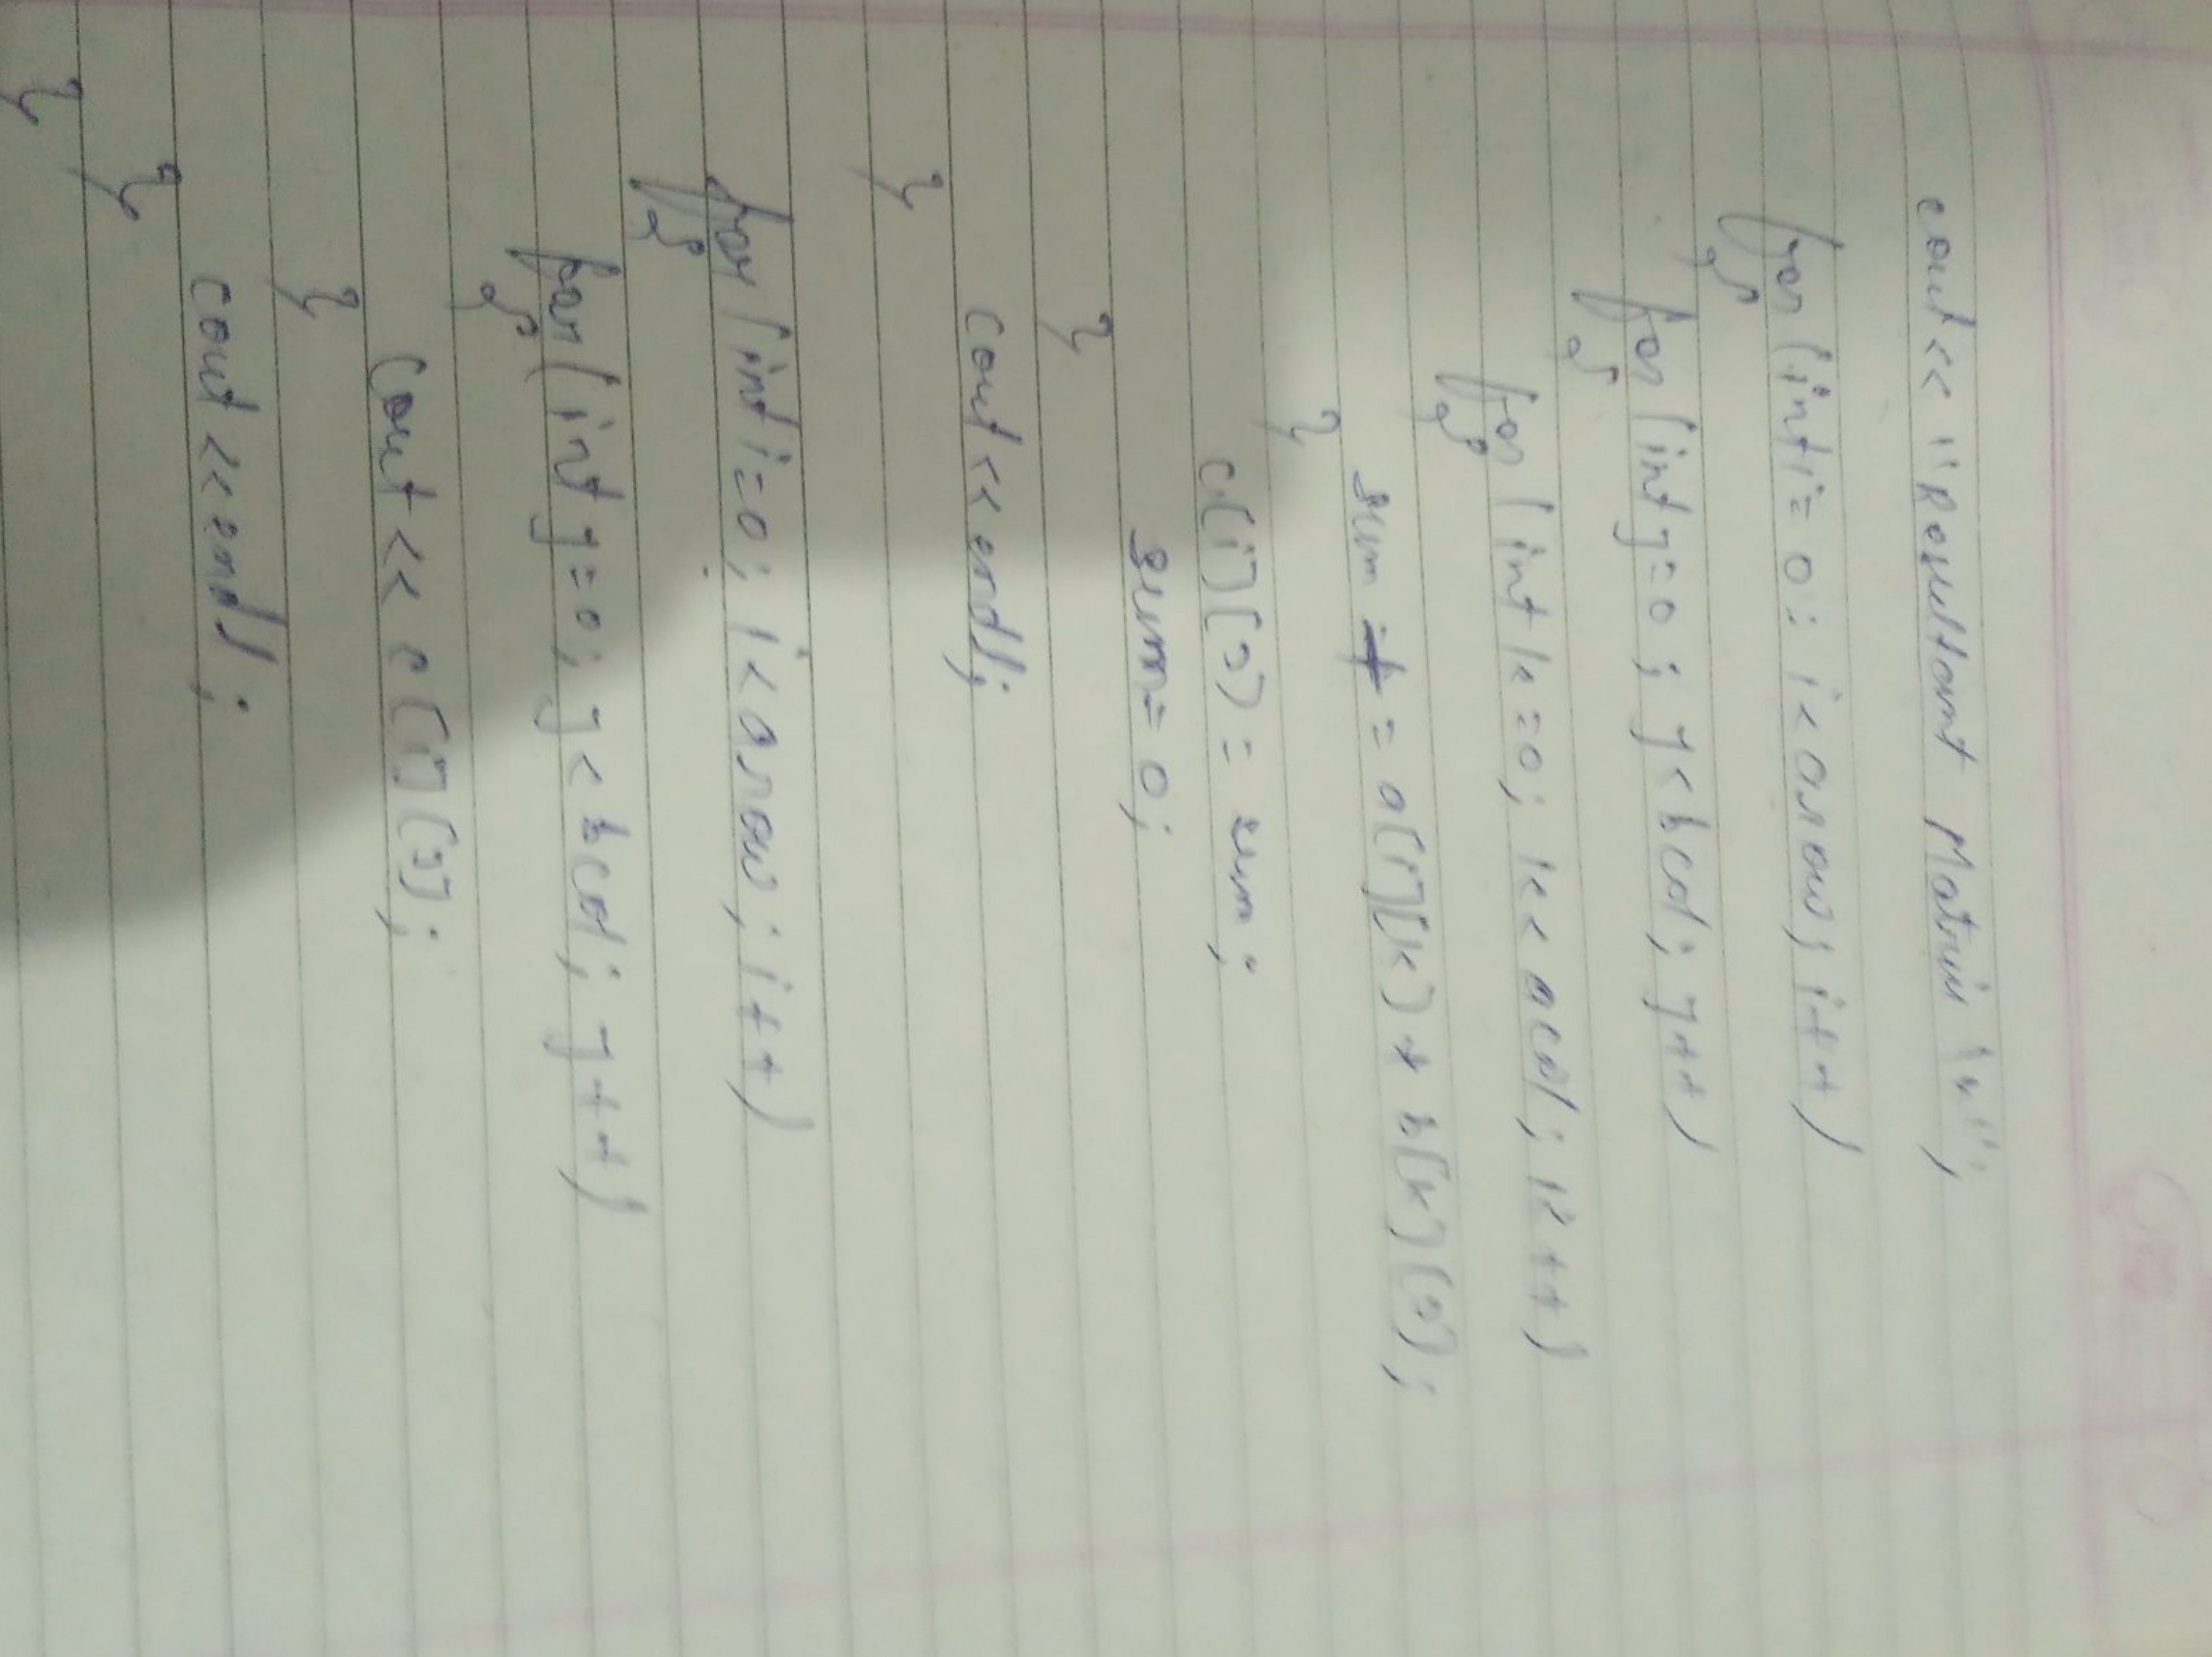 cout << "Resultant Matrix \n";
for (int i = 0; i < arow; i++)
{
for (int j = 0; j < bcol; j++)
{
for (int k = 0; k < acol; k++)
{
sum += a[i][k] * b[k][j];
}
c[i][j] = sum;
sum = 0;
}
cout << endl;
}
for (int i = 0; i < arow; i++)
{
for (int j = 0; j < bcol; j++)
{
cout << c[i][j];
}
cout << endl;
}
}